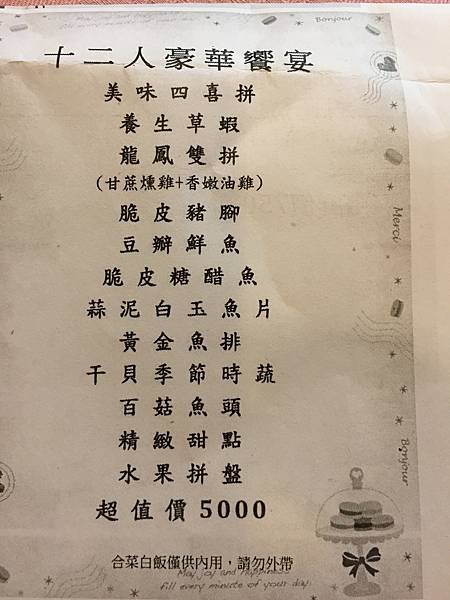 May joy and Happiness
fill every minute of your day.
Bonjour
十二人豪華饗宴
美味四喜拼
養生草蝦
龍鳳雙拼
(甘蔗燻雞+香嫩油雞)
脆皮豬腳
豆瓣鮮魚
脆皮糖醋魚
蒜泥白玉魚片
黃金魚排
干貝季節時蔬
百菇魚頭
精緻甜點
水果拼盤
超值價5000
合菜白飯僅供內用，請勿外帶
Merci
Bonjour
May joy and Happiness
fill every minute of your day.